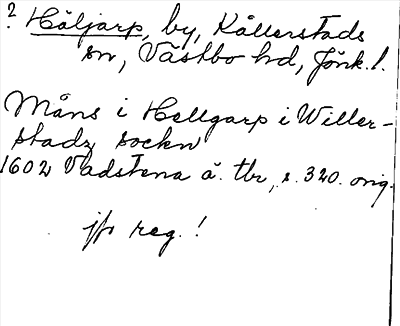 ? Häljarp, by, Kållerstads
sn, Västbo hd, Jönk. l.
Måns i Hellgarp i Willer-
stadz sockn
1602 Vadstena ä. tbr, s. 320. orig.
jfr reg. !